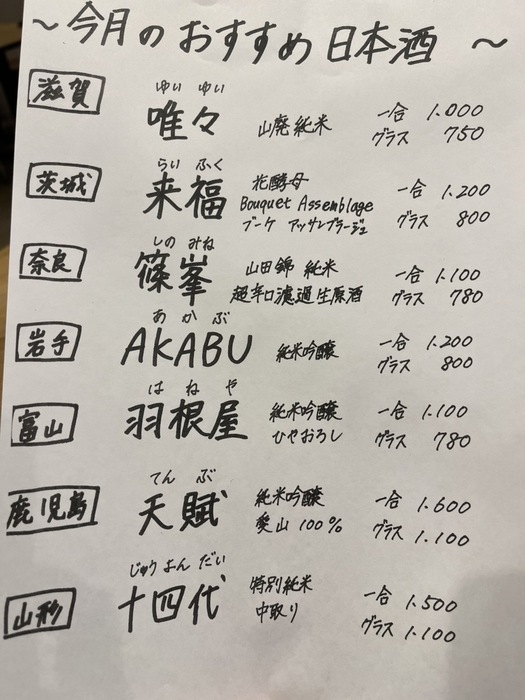 ～今月のおすすめ日本酒 ～
滋賀 ゆい ゆい 一合 1.000
唯々 山廃純米 グラス 750
らい ふく 花酵母 一合 1.200
茨城 来福 Bouquet Assemblage グラス 800
ブーケ アッサンブラージュ
しの みね 山田錦 純米 一合 1.100
奈良 篠峯 超辛口濾過生原酒 グラス 780
あ か ぶ 一合 1.200
岩手 AKABU 純米吟醸 グラス 800
は ね や 純米吟醸 一合 1.100
富山 羽根屋 ひやおろし グラス 780
てん ぶ 純米吟醸 一合 1.600
鹿児島 天賦 愛山 100% グラス 1.100
じゅう よん だい 特別純米 一合 1.500
山形 十四代 中取り グラス 1.100